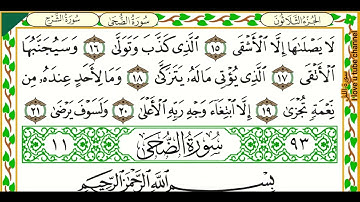 الجزء الثلاثون سورة الضحى سورة الشرح
لَا يَصْلَىٰهَا إِلَّا الْأَشْقَى ١٥ الَّذِي كَذَّبَ وَتَوَلَّىٰ ١٦ وَسَيُجَنَّبُهَا
الْأَتْقَى ١٧ الَّذِي يُؤْتِي مَالَهُ يَتَزَكَّىٰ ١٨ وَمَا لِأَحَدٍ عِنْدَهُ مِنْ
نِعْمَةٍ تُجْزَىٰ ١٩ إِلَّا ابْتِغَاءَ وَجْهِ رَبِّهِ الْأَعْلَىٰ ٢٠ وَلَسَوْفَ يَرْضَىٰ ٢١
٩٣ سُورَةُ الضُّحَىٰ ١١
بِسْمِ اللَّهِ الرَّحْمَٰنِ الرَّحِيمِ